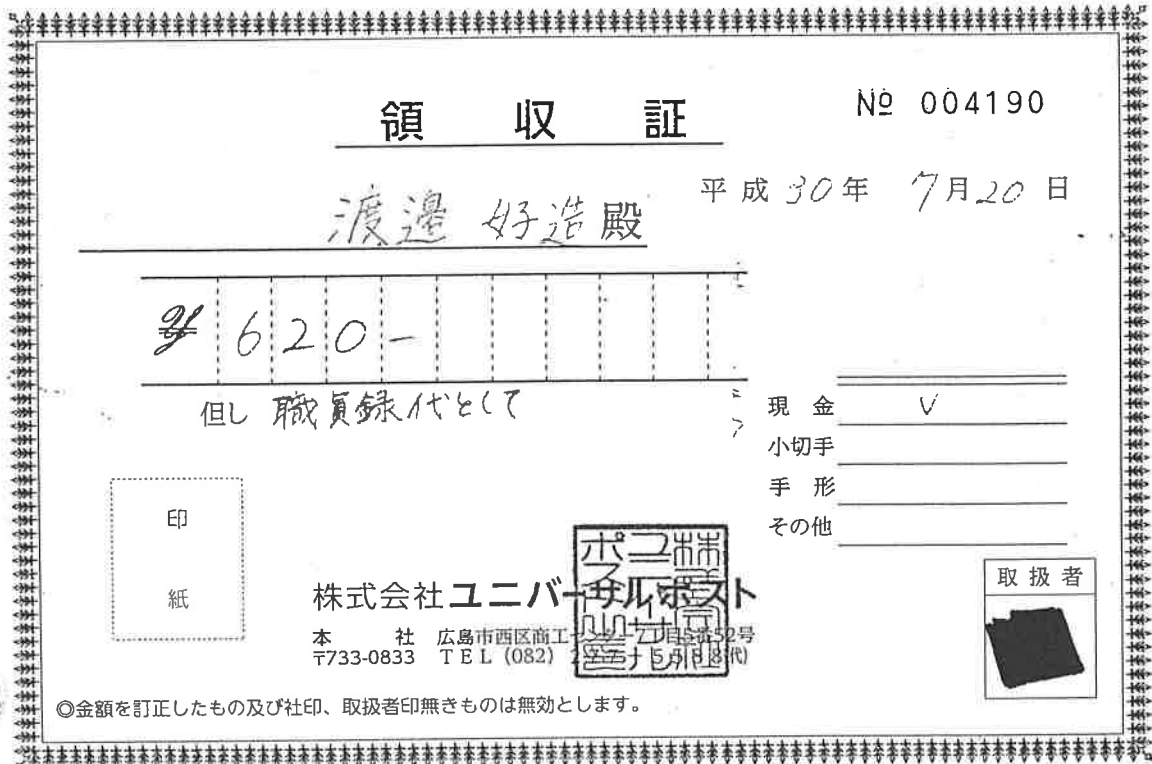 領収証
№ 004190
平成 30年 7月20日
渡邉 好造 殿
¥ 620-
但し 職員録代として
現金 V
小切手
手形
その他
印
紙
株式会社ユニバーサルポスト
本社 広島市西区商工センター7丁目5番52号
〒733-0833 TEL (082)
取扱者
◎金額を訂正したもの及び社印、取扱者印無きものは無効とします。